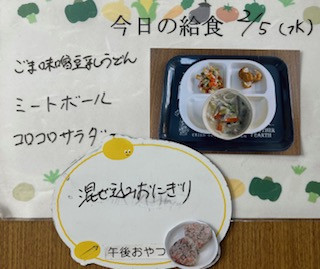 今日の給食 2/5 (水)
ごま味噌豆乳うどん
ミートボール
コロコロサラダ
混ぜ込みおにぎり
午後おやつ